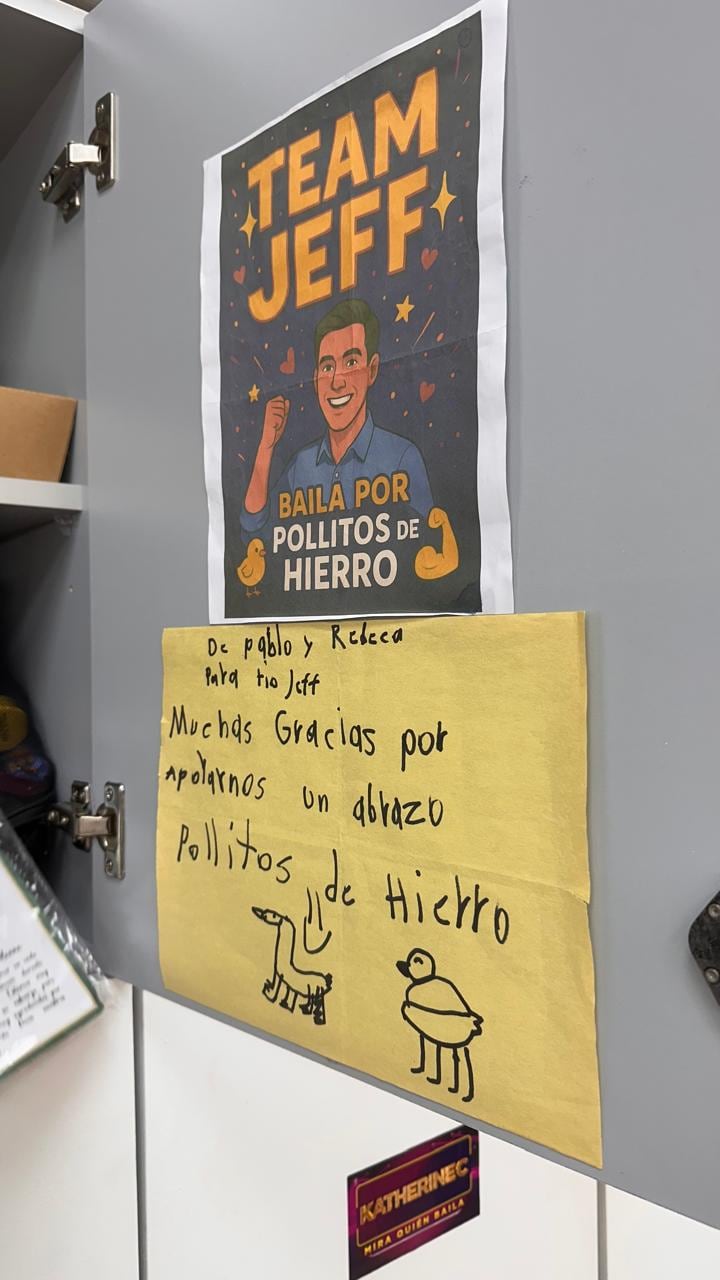 TEAM
JEFF
BAILA POR
POLLITOS DE
HIERRO
De pablo y Rebeca
Para tio Jeff
Muchas Gracias por
apolarnos un abrazo
Pollitos de Hierro
KATHERINE C
MIRA QUIÉN BAILA